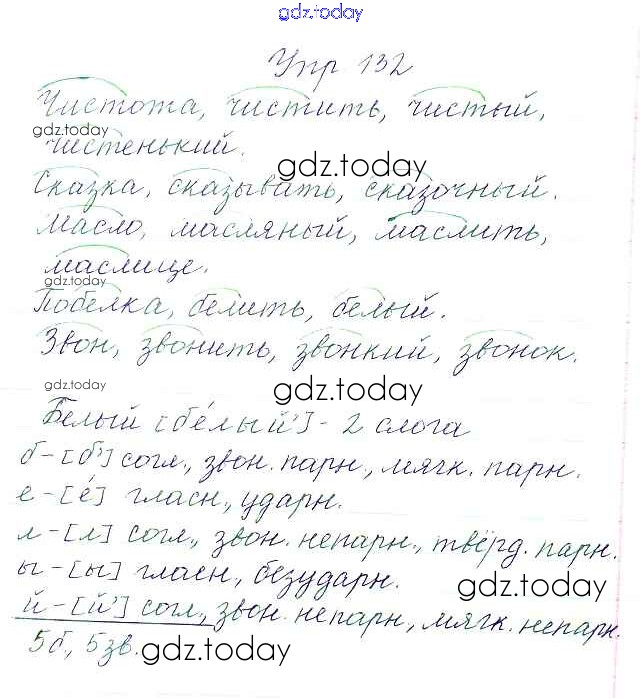 gdz.today
Упр 132
Чистота, чистить, чистый,
gdz.today
чистенький.
gdz.today
Сказка, сказывать, сказочный.
Масло, масляный, маслить,
маслице.
gdz.today
Побелка, белить, белый.
Звон, звонить, звонкий, звонок.
gdz.today
gdz.today
Белый [б'е́лый'] - 2 слога
б - [б'] согл., звон. парн., мягк. парн.
е - [е́] гласн., ударн.
л - [л] согл., звон. непарн., твёрд. парн.
ы - [ы] гласн., безударн.
gdz.today
й - [й'] согл., звон. непарн., мягк. непарн.
5б, 5зв.
gdz.today